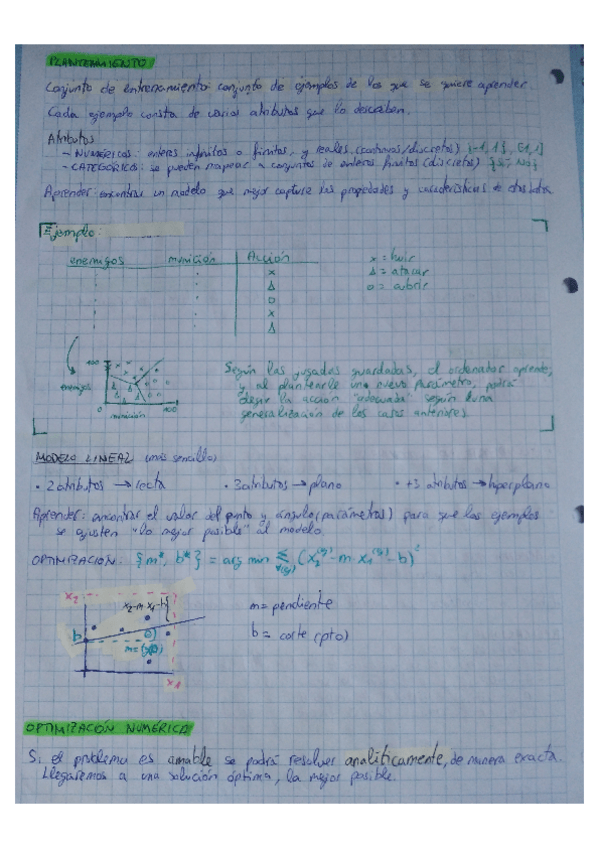 PLANTEAMIENTO
Conjunto de entrenamiento: conjunto de ejemplos de los que se quiere aprender.
Cada ejemplo consta de varios atributos que lo describen.
Atributos
- NUMÉRICOS: enteros infinitos o finitos, y reales (continuos/discretos)
- CATEGÓRICOS: se pueden mapear a conjuntos de enteros finitos (discretos) {Sí, No}
Aprender: encontrar un modelo que mejor capture las propiedades y características de
Ejemplo:
enemigos munición Acción
x
Δ
o
x
Δ
x = huir
Δ = atacar
o = cubrir
100
enemigos
0 munición 100
Según las jugadas guardadas, el ordenador aprende,
y al plantearle un nuevo parámetro, podrá
elegir la acción "adecuada" según una
generalización de los casos anteriores.
MODELO LINEAL (más sencillo)
• 2 atributos → recta • 3 atributos → plano • +3 atributos → hiperplano
Aprender: encontrar el valor del punto y ángulo (parámetros) para que los ejemplos
se ajusten "lo mejor posible" al modelo.
OPTIMIZACIÓN: {m*, b*} = arg min Σ∀(j) (x₂⁽ʲ⁾ - m · x₁⁽ʲ⁾ - b)²
x₂
x₂-m·x₁-b
b
x₁
m = pendiente
b = corte (pto)
OPTIMIZACIÓN NUMÉRICA
Si el problema es amable se podrá resolver analíticamente, de manera exacta.
Llegaremos a una solución óptima, la mejor posible.